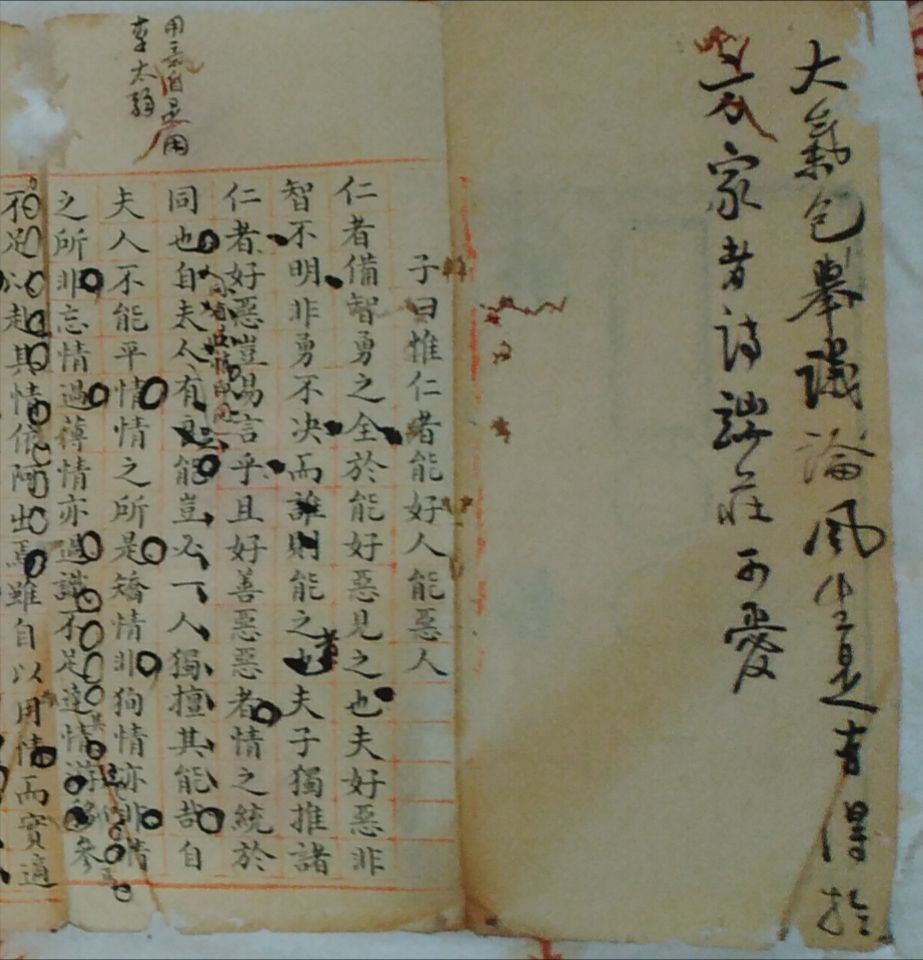 大氣包舉議論風生是有得於
方家者詩談莊可愛
李太
子曰惟仁者能好人能惡人
仁者備智勇之全於能好惡見之也夫好惡非
智不明非勇不决而誰則能之者夫子獨推諸
仁者好惡豈易言乎且好善惡惡者情之統於
同也自夫人有能豈必一人獨擅其能哉自
夫人不能平情情之所是矯情非狥情亦非情
之所非忘情過薄情亦過識不足達情游移參
不足以赴其情依阿出焉雖自以用情而實適